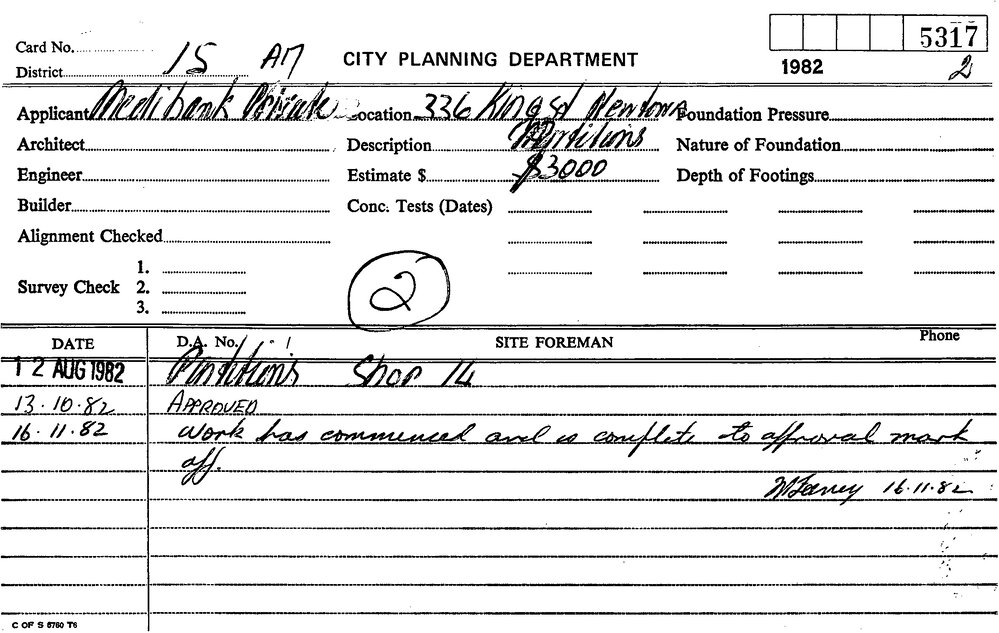 5317
Card No.
District 15 AM CITY PLANNING DEPARTMENT 1982 2
Applicant Medibank Private Location 336 King St Newtown Foundation Pressure
Architect Description Partitions Nature of Foundation
Engineer Estimate $ $3000 Depth of Footings
Builder Conc. Tests (Dates)
Alignment Checked
1.
Survey Check 2. 2
3.
DATE D.A. No. SITE FOREMAN Phone
12 AUG 1982 Partitions Shop 14
13.10.82 APPROVED
16.11.82 Work has commenced and is complete to approval mark
off.
16.11.82
C OF S 6760 T6